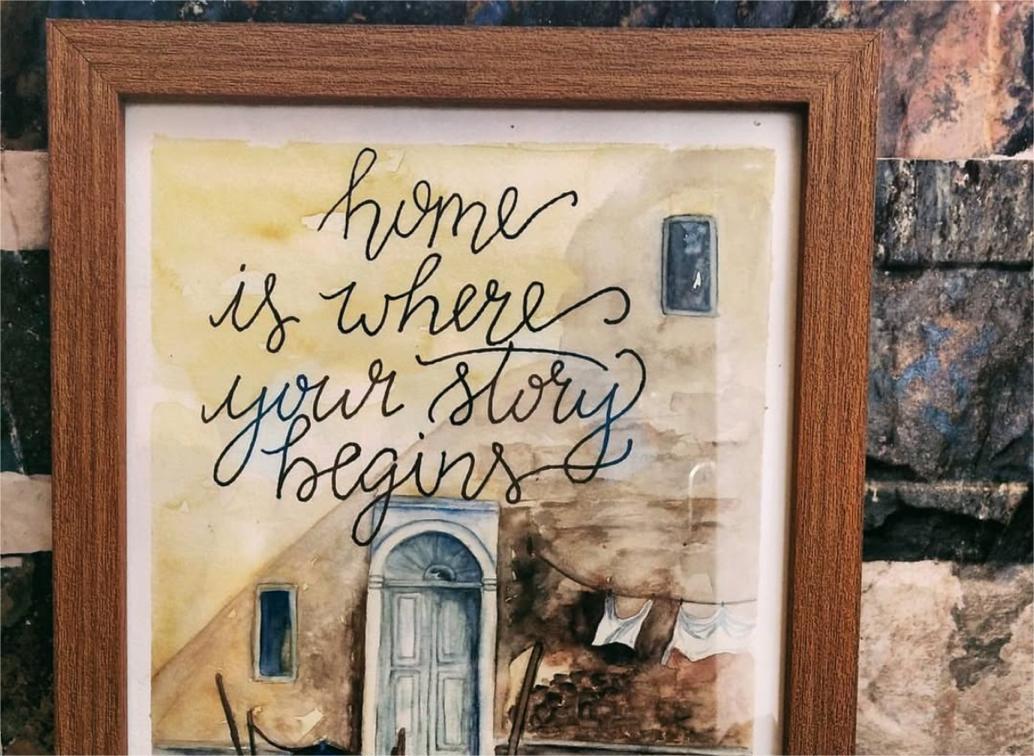 home
is where
your story
begins